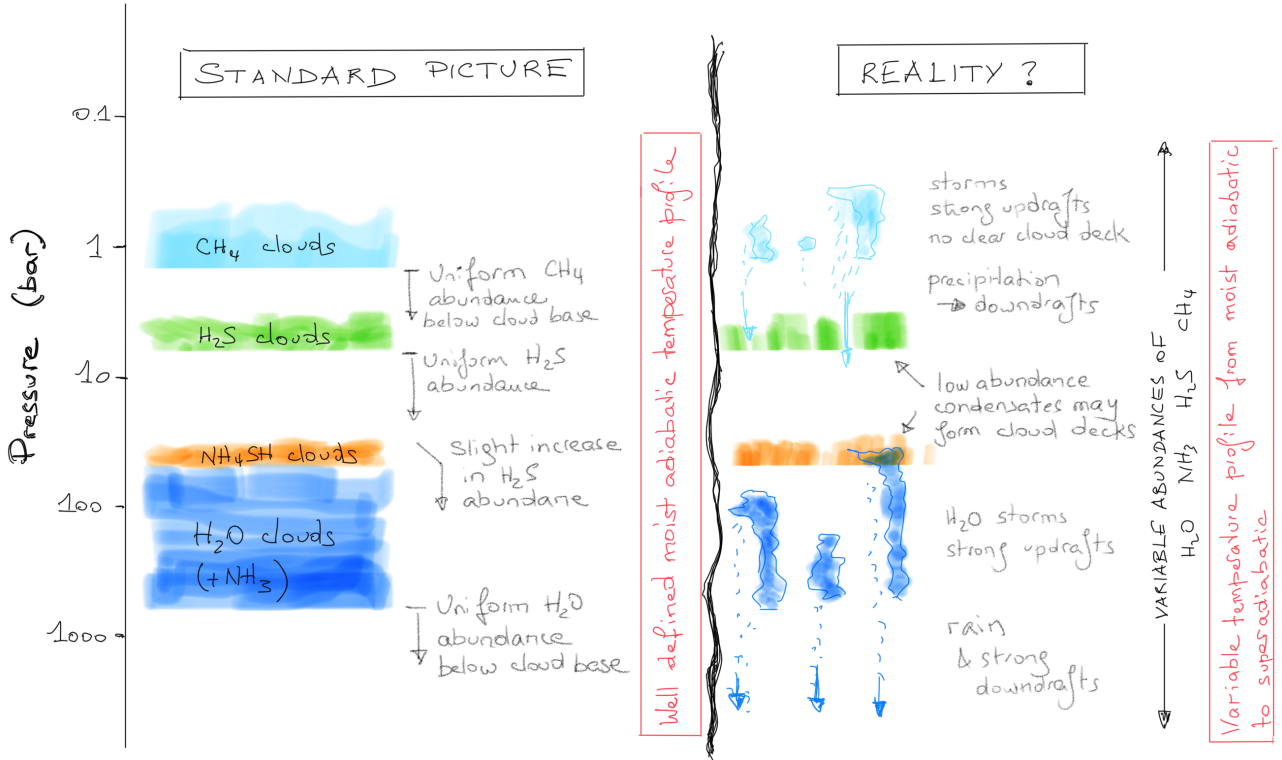 STANDARD PICTURE
REALITY ?
Pressure (bar)
0.1
1
10
100
1000
CH4 clouds
H2S clouds
NH4SH clouds
H2O clouds
(+NH3)
Uniform CH4
abundance
below cloud base
Uniform H2S
abundance
Slight increase
in H2S
abundance
Uniform H2O
abundance
below cloud base
Well defined moist adiabatic temperature profile
storms
strong updrafts
no clear cloud deck
precipitation
→ downdrafts
low abundance
condensates may
form cloud decks
H2O storms
strong updrafts
rain
& strong
downdrafts
VARIABLE ABUNDANCES OF
H2O NH3 H2S CH4
Variable temperature profile from moist adiabatic
to superadiabatic